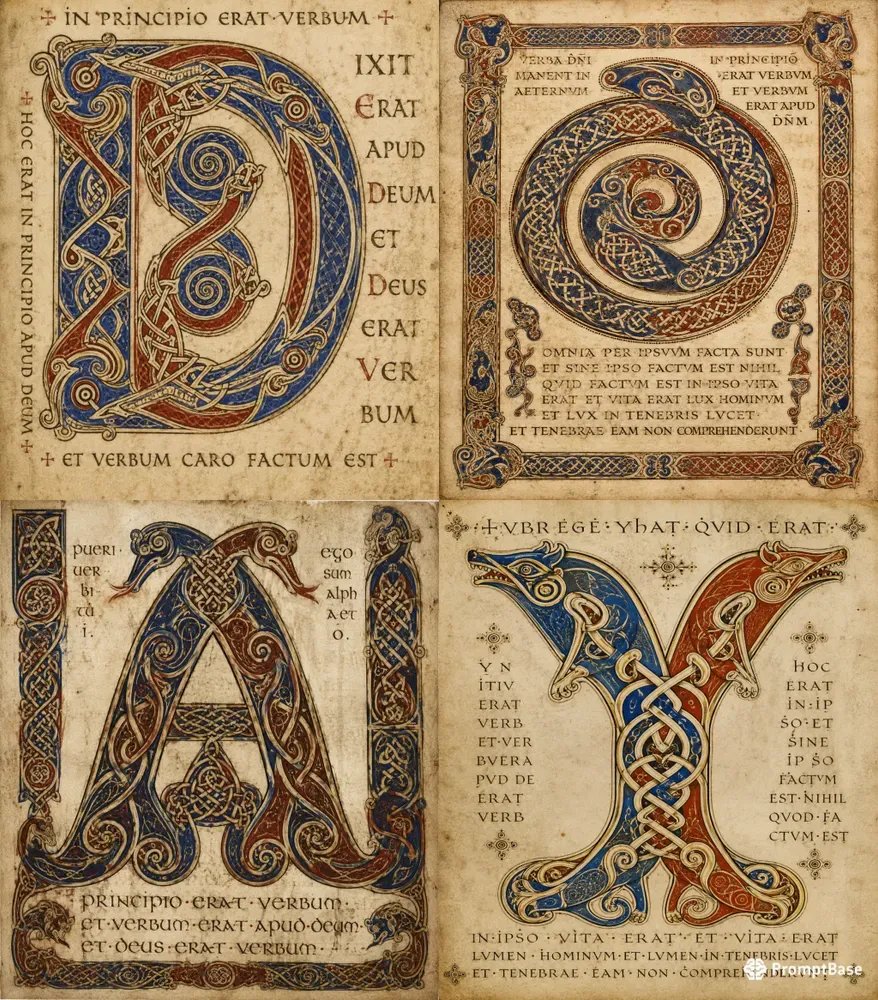 ✠ IN PRINCIPIO ERAT·VERBUM ✠
✠ HOC ERAT IN PRINCIPIO APUD DEUM ✠
D
IXIT
ERAT
APUD
DEUM
ET
DEUS
ERAT
VER
BUM
✠ ET VERBUM CARO FACTUM EST ✠
VERBA DÑI
MANENT IN
AETERNVM
IN PRINCIPIO
ERAT VERBVM
ET VERBVM
ERAT APUD
DÑM·
OMNIA PER IPSVVM FACTA SUNT
ET SINE IPSO FACTVM EST NIHIL
QVID FACTVM EST IN IPSO VITA
ERAT ET VITA ERAT LUX HOMINVM
ET LVX IN TENEBRIS LVCET·
ET TENEBRAE EAM NON COMPREHENDERUNT·
pueri·
uer
bi·
i.
A
ego
sum
alph
a et
o.
PRINCIPIO·ERAT·VERBUM·
ET·VERBUM·ERAT·APUD·DEUM·
ET·DEUS·ERAT·VERBUM·
✠VBR EGE·YhAT·QVID·ERAT·
Y
Y N
ITIV
ERAT
VERB
ET·VER
BVERA
PVD DE
ERAT
VERB
HOC
ERAT
IN:IP
SO·ET
SINE
IP SO
FACTVM
EST·NIHIL
QVOD·FA
CTVM·EST
IN·IPSO·VITA·ERAT·ET·VITA·ERAT
LVMEN·HOMINVM·ET·LVMEN·IN·TENEBRIS·LVCET
ET·TENEBRAE·EAM·NON·
PromptBase